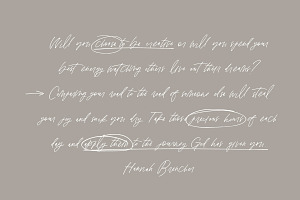 Will you choose to be creative or will you spend your
best energy watching others live out their dreams?
Comparing your road to the road of someone else will steal
your joy and suck you dry. Take those precious hours of each
day and apply them to the journey God has given you.
Hannah Brencher